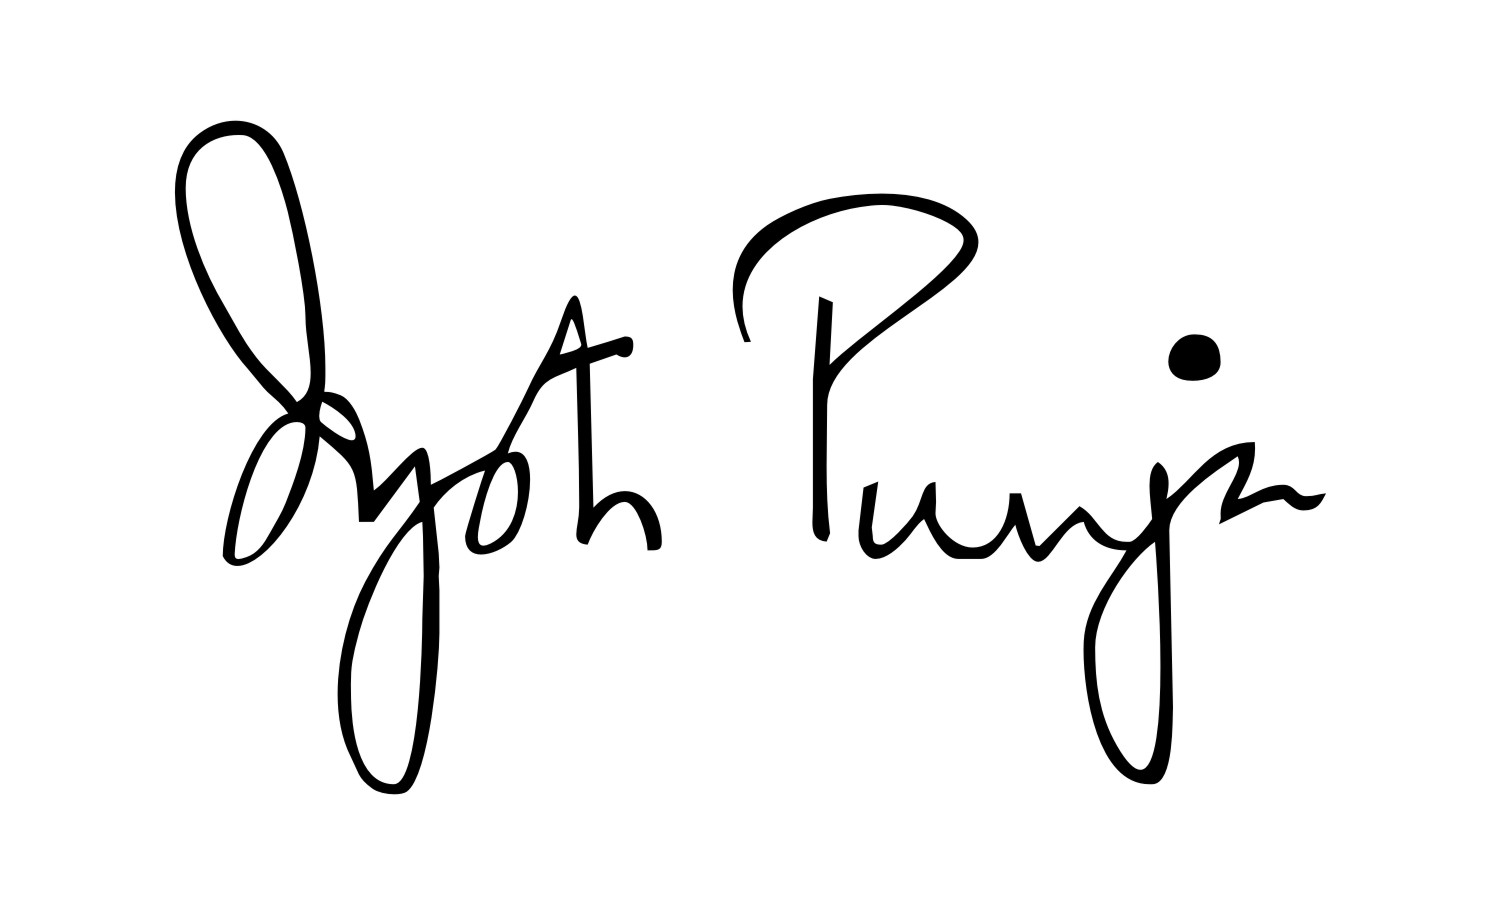 Jyoti Punja